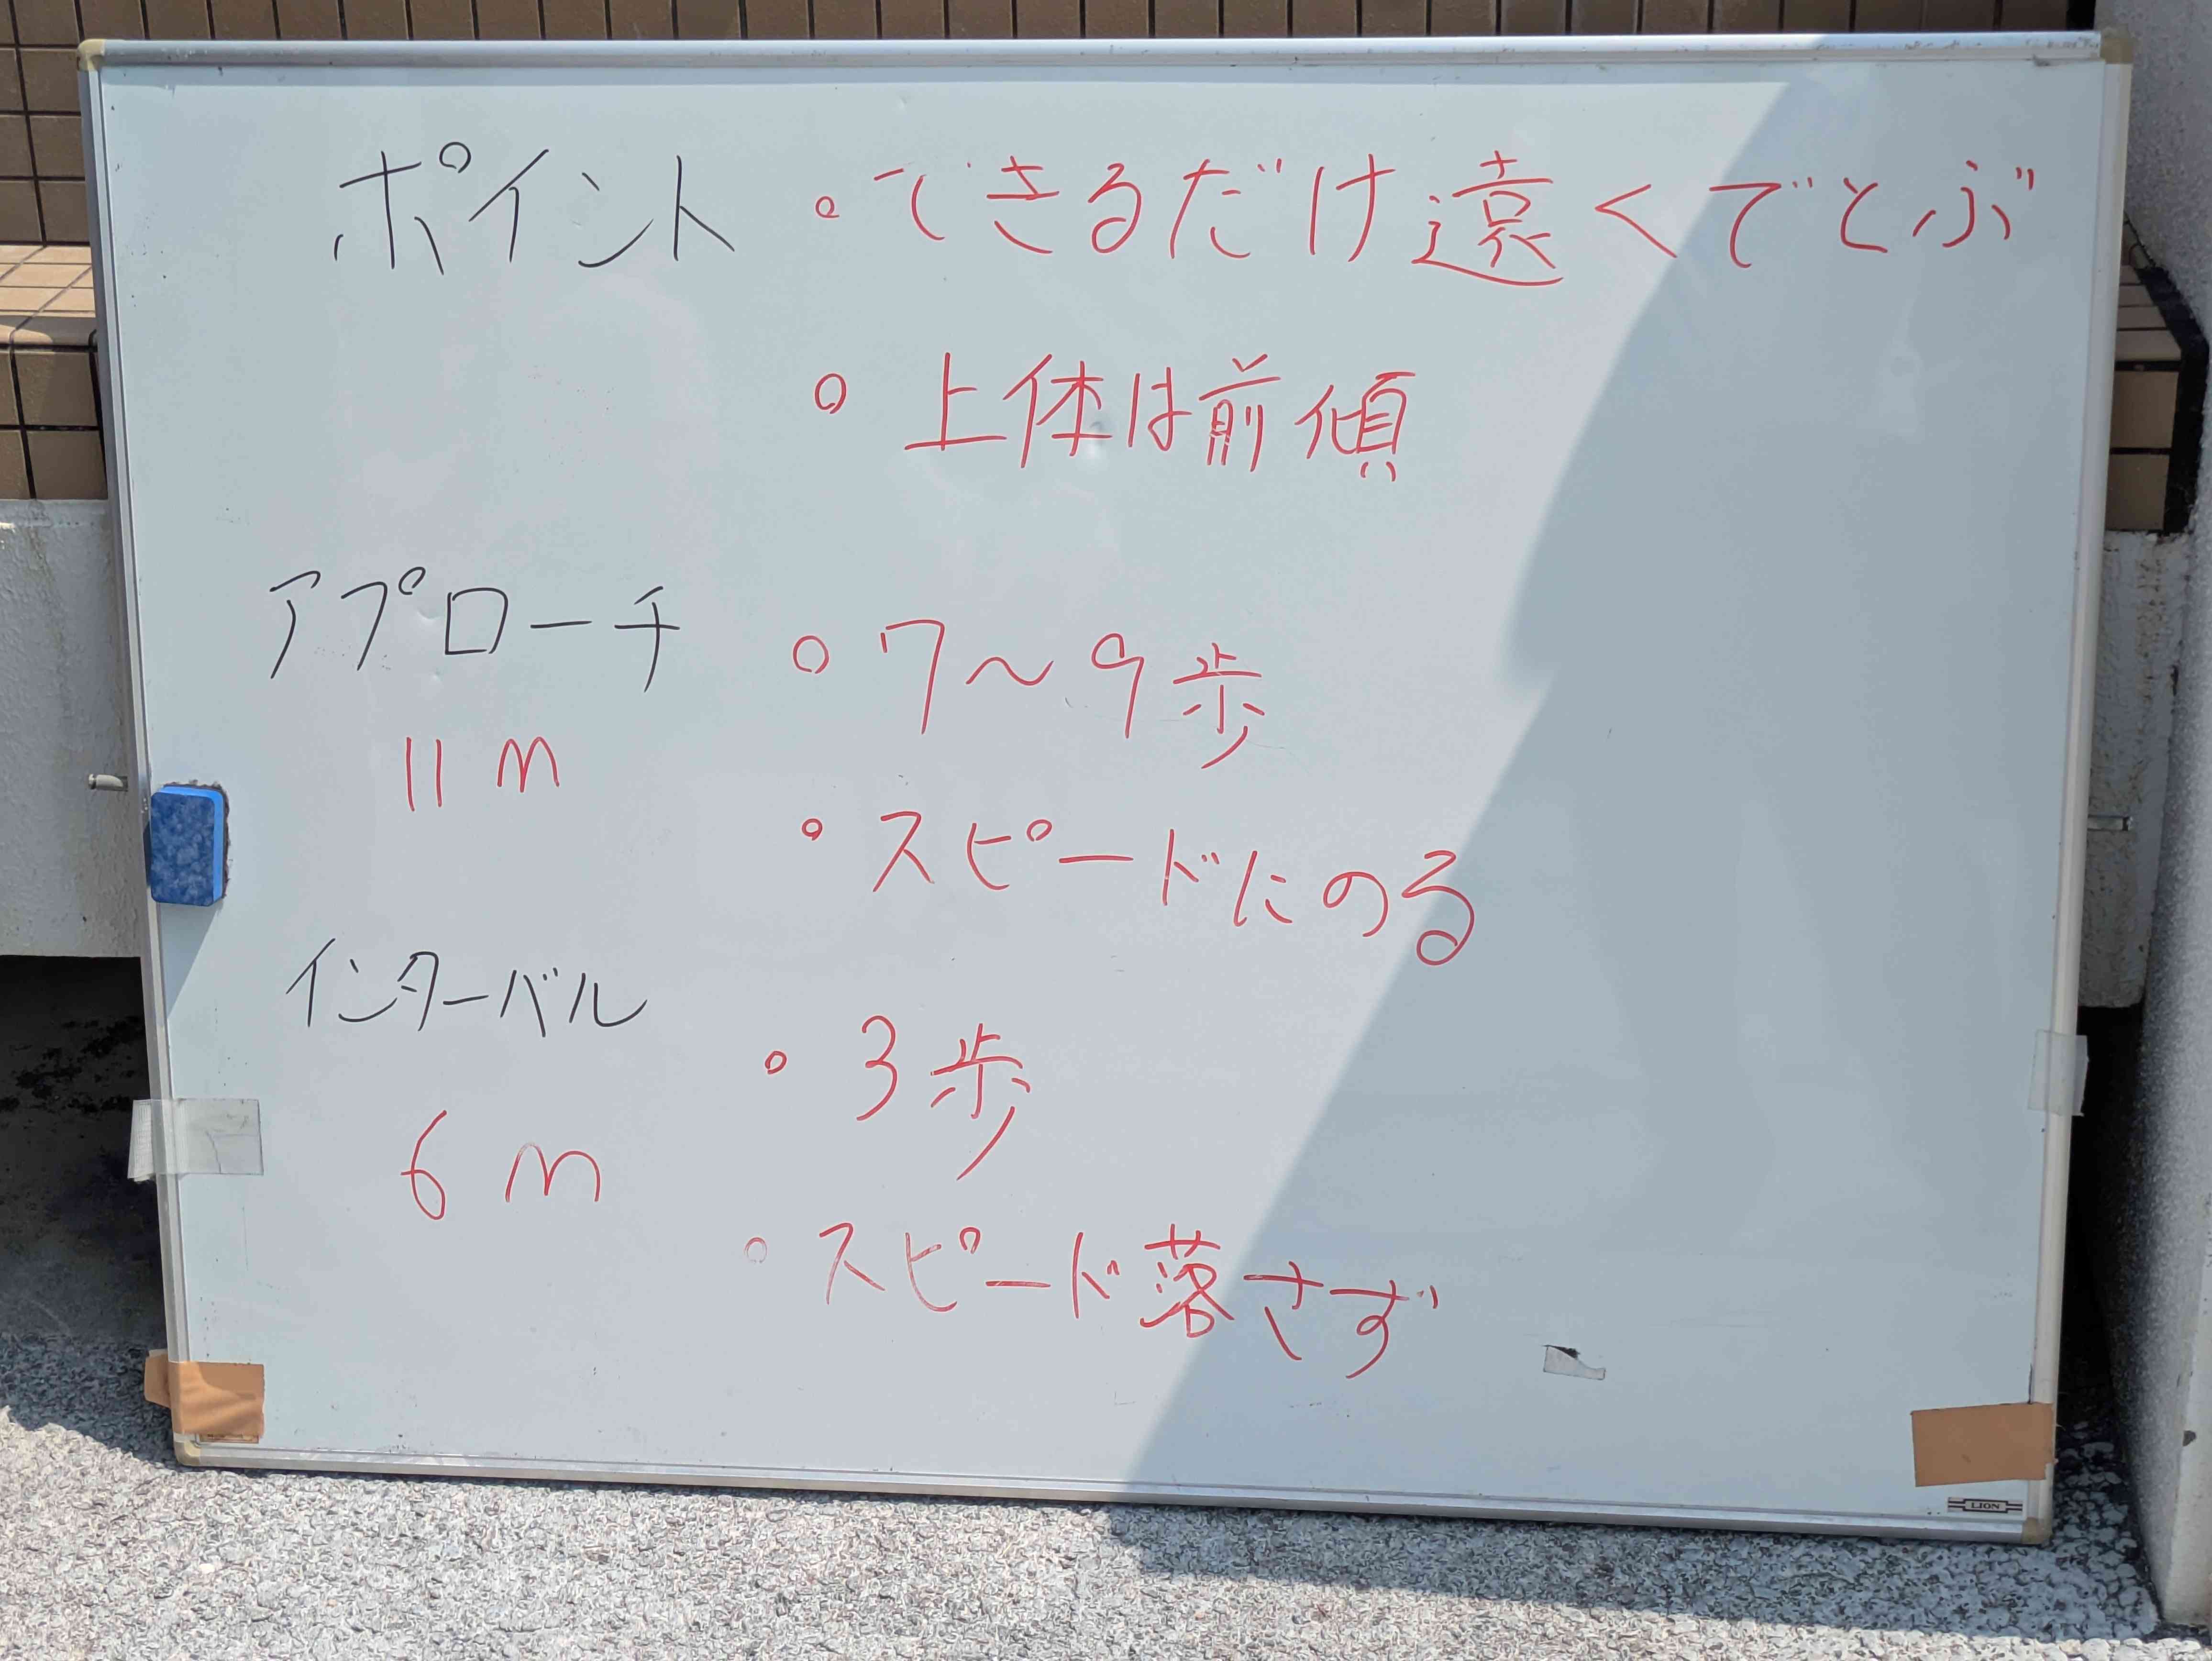 ポイント ・できるだけ遠くでとぶ
・上体は前傾
アプローチ ・7～9歩
11m
・スピードにのる
インターバル
・3歩
6m
・スピード落さず
LION